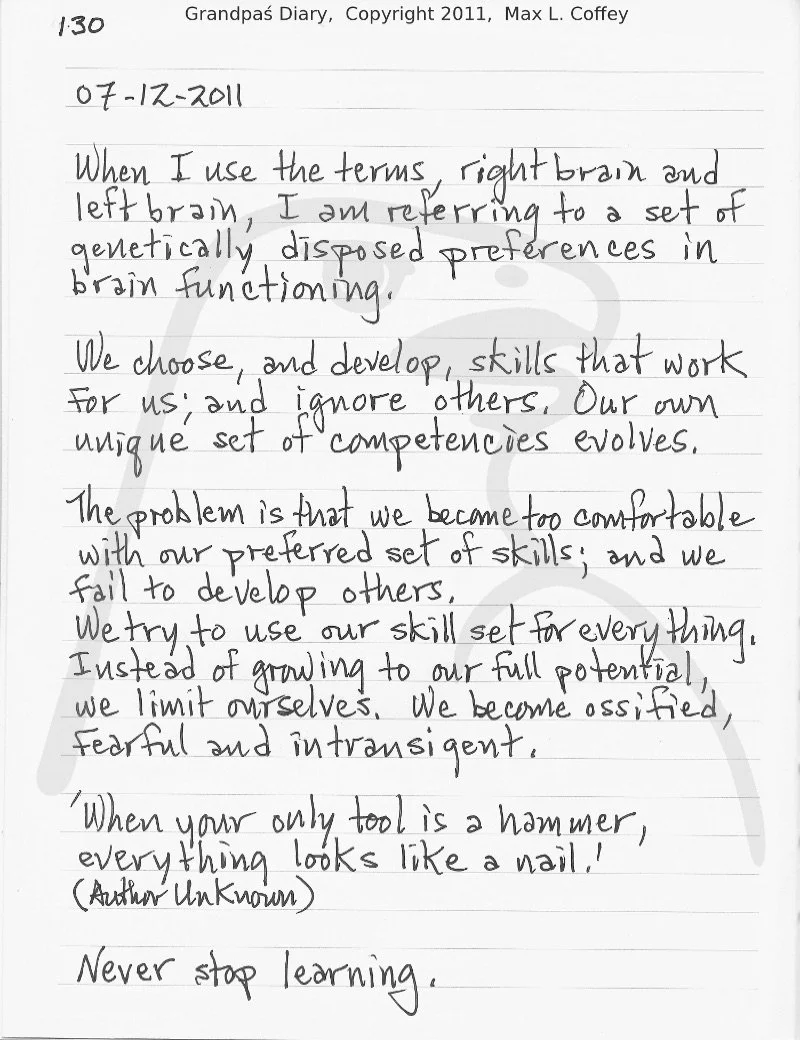 Grandpaś Diary, Copyright 2011, Max L. Coffey
130
07-12-2011
When I use the terms, right brain and
left brain, I am referring to a set of
genetically disposed preferences in
brain functioning.
We choose, and develop, skills that work
for us; and ignore others. Our own
unique set of competencies evolves.
The problem is that we become too comfortable
with our preferred set of skills; and we
fail to develop others.
We try to use our skill set for everything.
Instead of growing to our full potential,
we limit ourselves. We become ossified,
fearful and intransigent.
'When your only tool is a hammer,
everything looks like a nail.'
(Author Unknown)
Never stop learning.